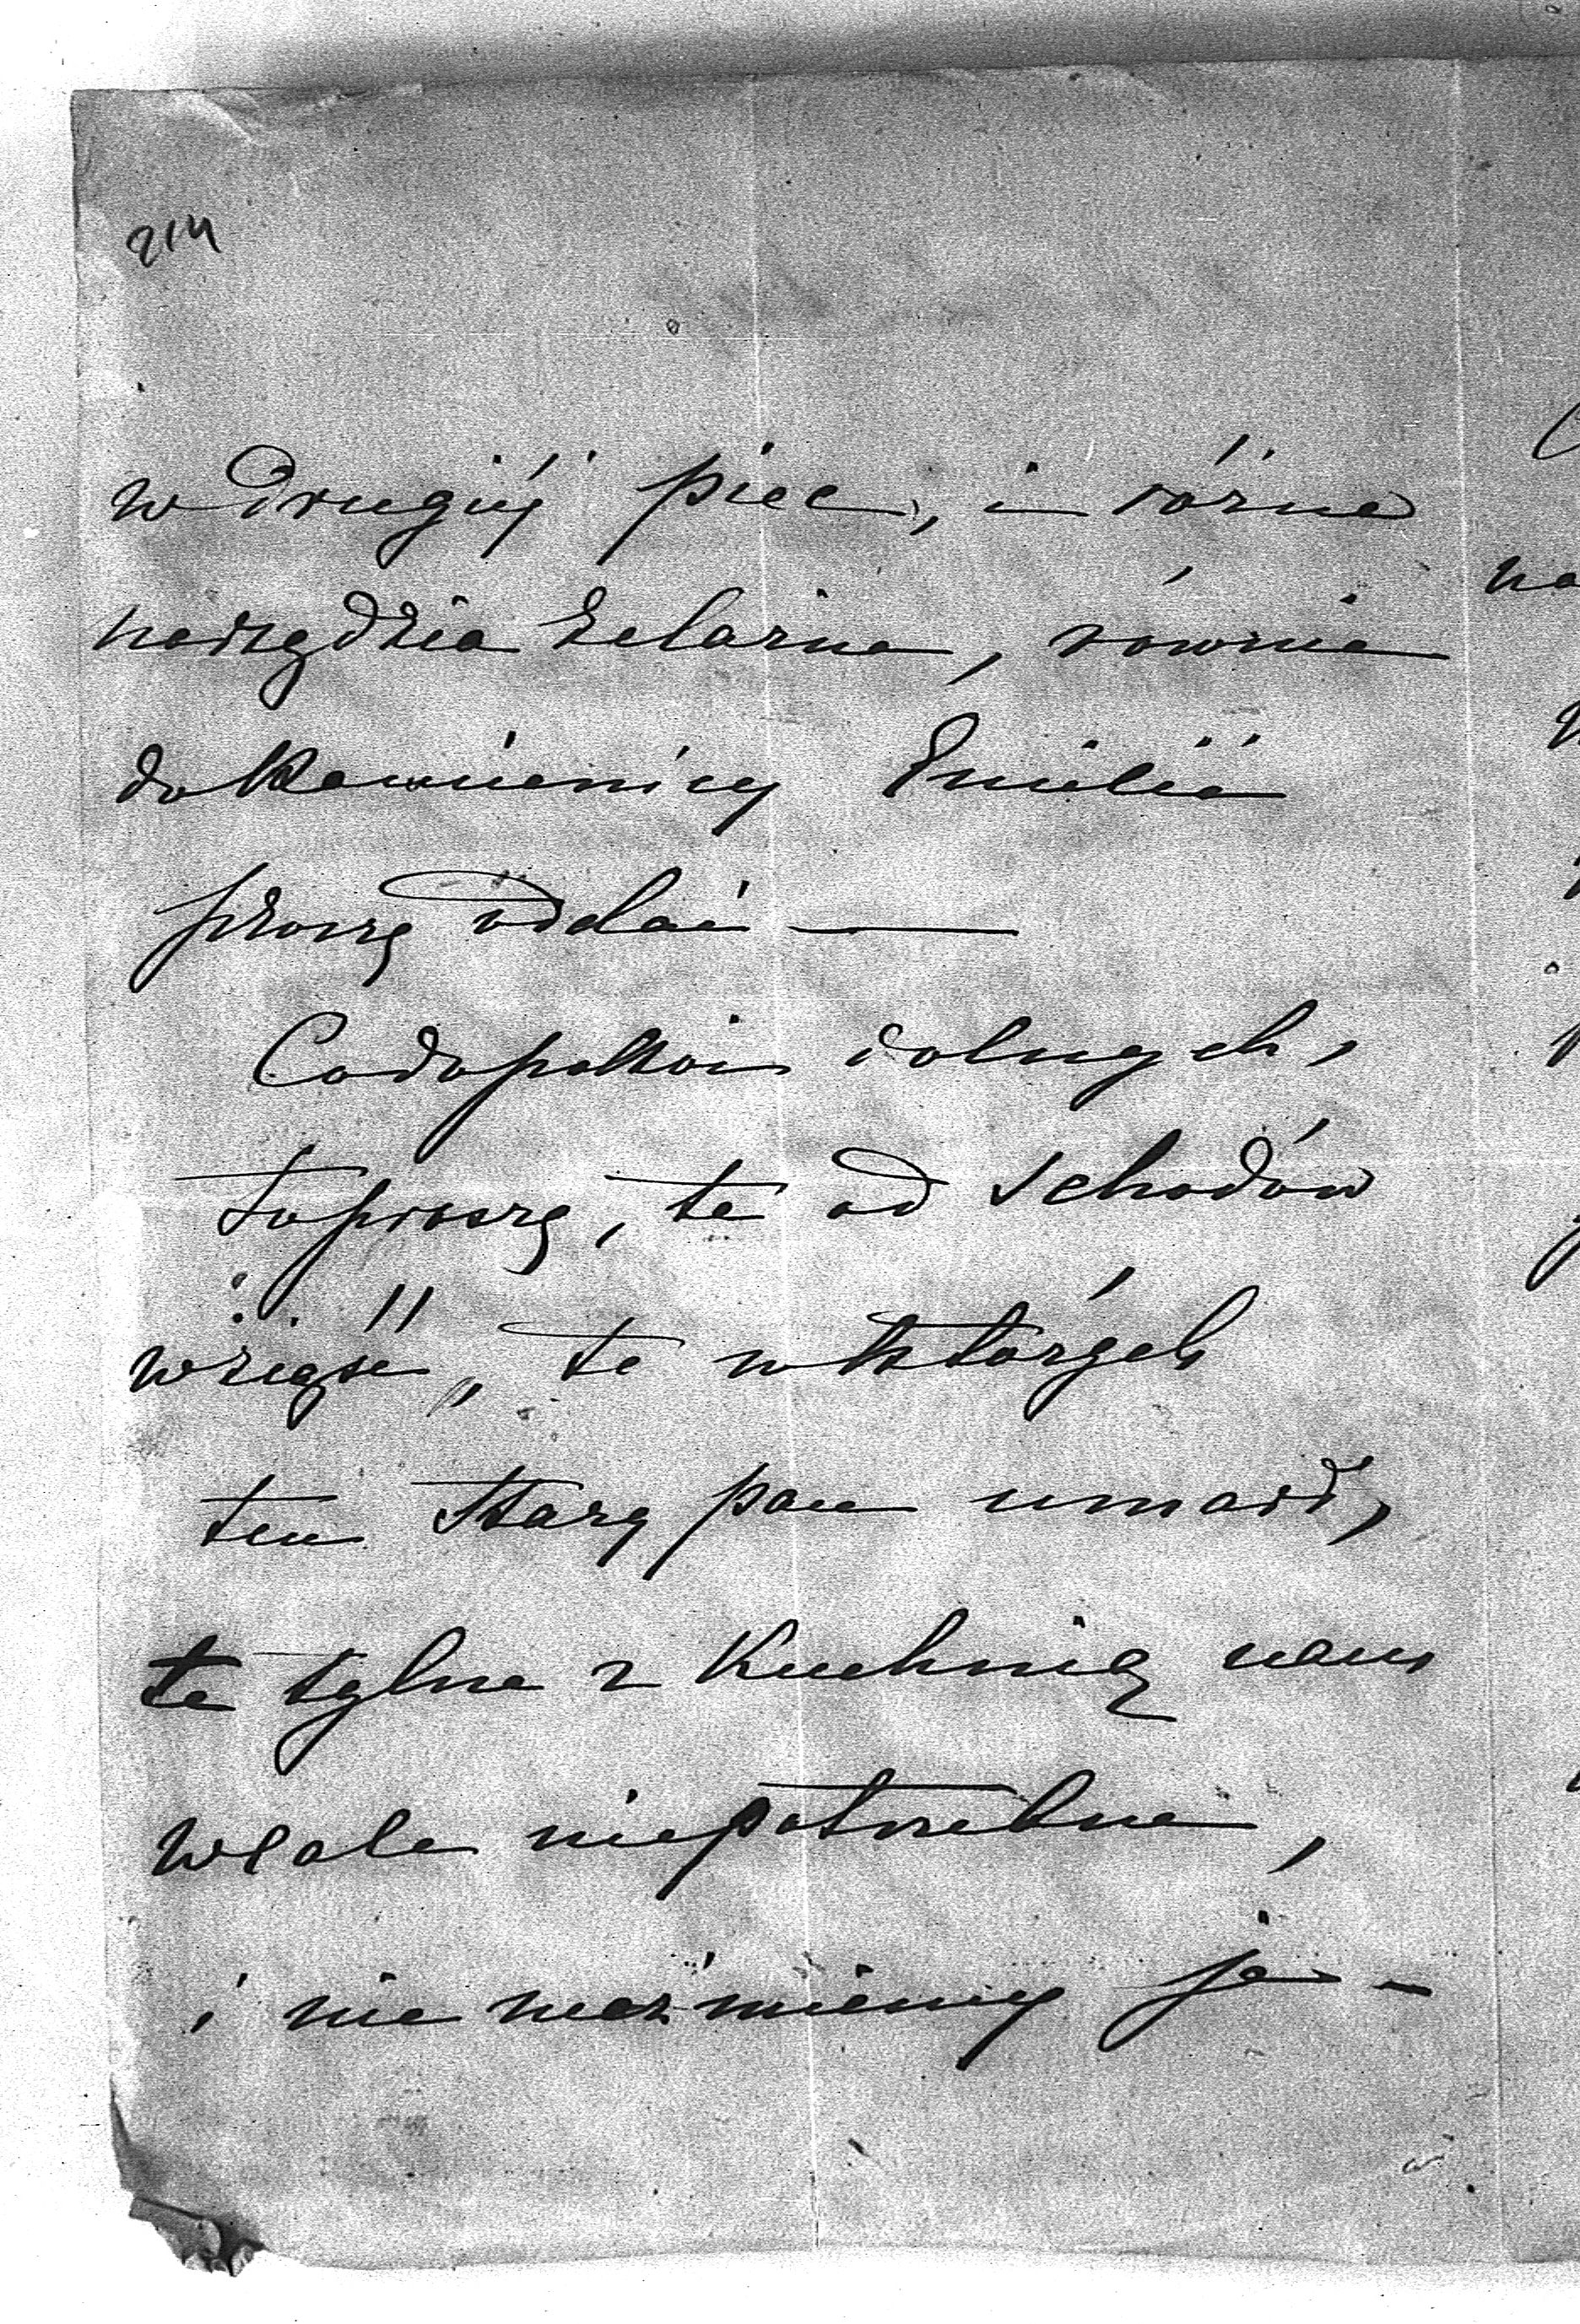 214
w drugiéj piec, i różne
narzędzia żelazne, równie
do Kamienicy Emilii
proszę oddać —
Co do pokoi dolnych,
to proszę, te od schodów
wziąść, te w których
ten stary pan umarł,
te tylne z Kuchnią nam
wcale niepotrzebne,
i nie weźmiemy je -